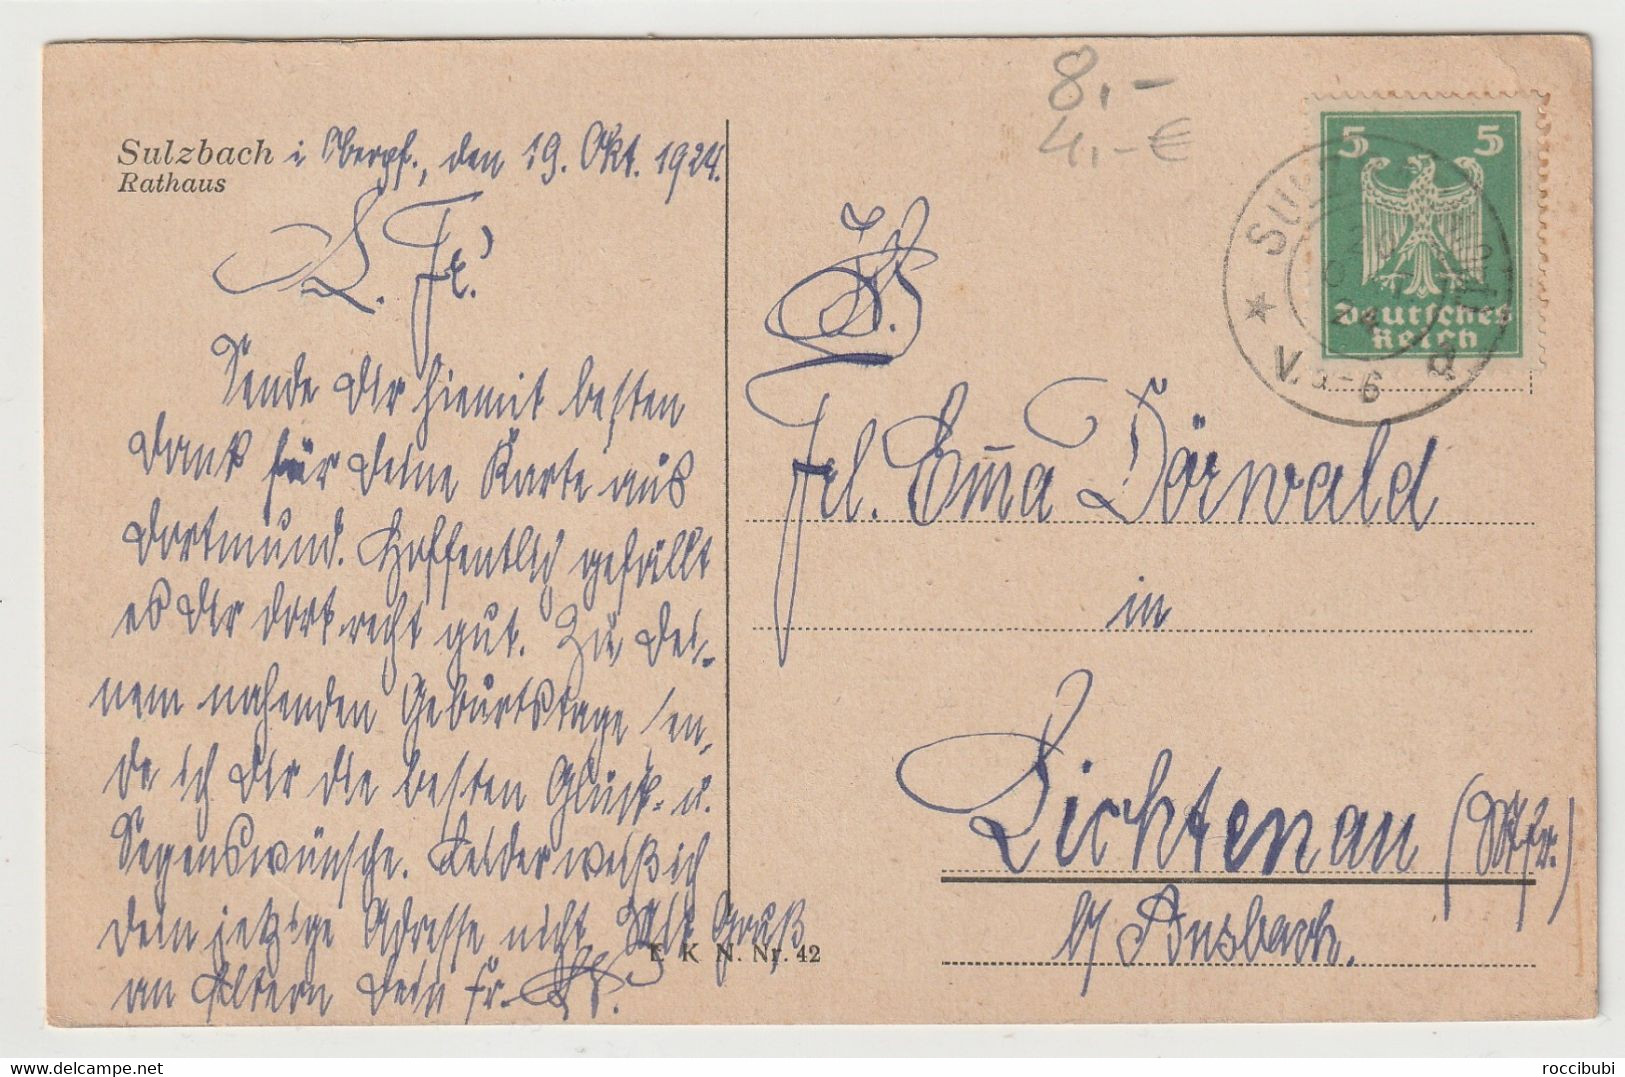 Sulzbach i Oberpf., den 19. Okt. 1924.
Rathaus
L. Fr.!
Sende Dir hiemit besten
Dank für Deine Karte aus
Dortmund. Hoffentlich gefällt
es Dir dort recht gut. Zu Dei-
nem nahenden Geburtstage sen-
de ich Dir die besten Glück- u.
Segenswünsche. Leider weiß ich
Dein jetzige Adresse nicht. Mit Gruß
an Eltern Dein Fr.
E K N. Nr. 42
8,-
4,-€
5 5
Deutsches
Reich
SULZ
20
24
V. 5-6
Frl. Em̄a Dörwald
in
Lichtenau (Mfr.)
b/ Ansbach.
delcampe.net
roccibubi